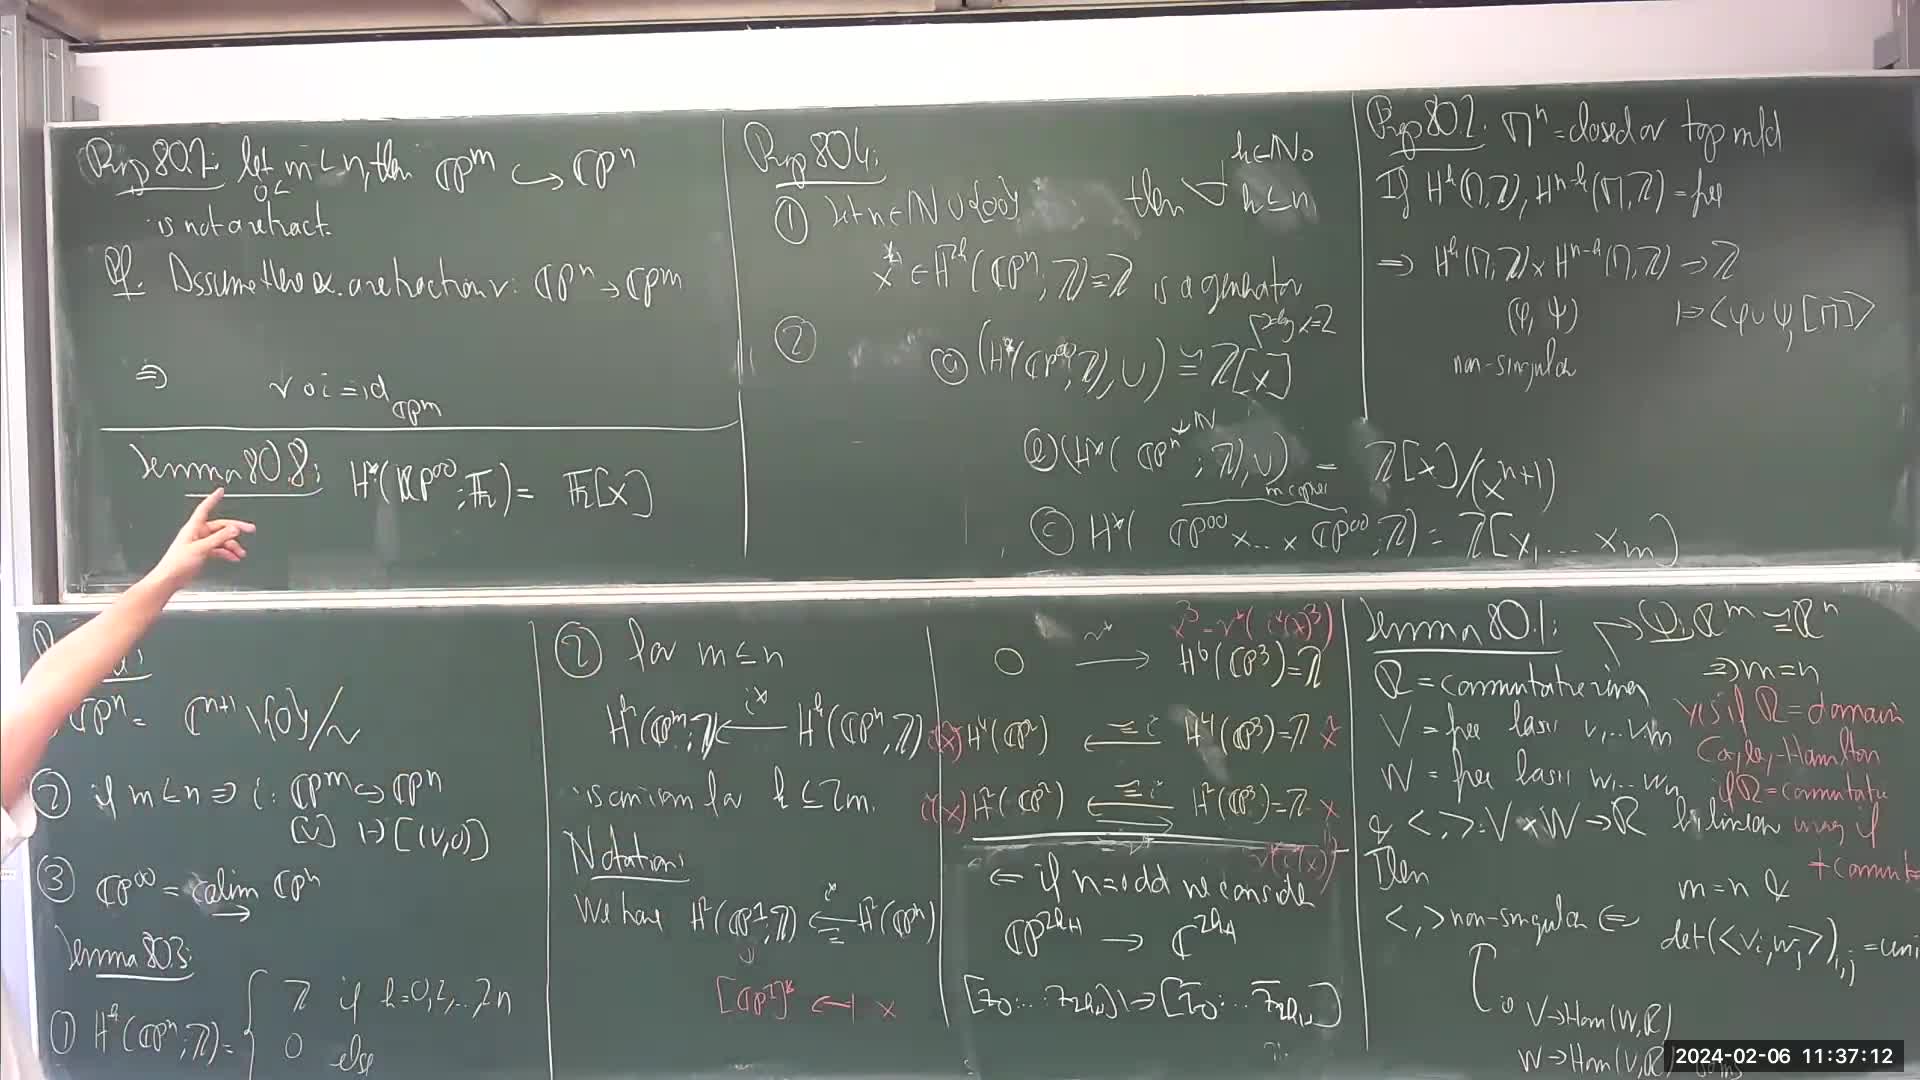 Prop 80.7: let m < n, then ℂPᵐ ↪ ℂPⁿ
0 <
is not a retract.
Pf. Assume there ex. a retraction r: ℂPⁿ → ℂPᵐ
⇒ r ∘ i = id_ℂPᵐ
Lemma 80.8: H*(ℝP^∞; 𝔽₂) = 𝔽₂[x]
Prop 80.4:
① let n ∈ ℕ ∪ {∞} then ∀ k ∈ ℕ₀ k ≤ n
xᵏ ∈ H²ᵏ(ℂPⁿ; ℤ) = ℤ is a generator
②
deg x = 2
ⓐ (H*(ℂP^∞; ℤ), ∪) ≅ ℤ[x]
ⓑ (H*(ℂPⁿ; ℤ), ∪) = ℤ[x]/(xⁿ⁺¹)
ℕ
m copies
ⓒ H*(ℂP^∞ × ... × ℂP^∞; ℤ) = ℤ[x₁ ... xₘ]
Prop 80.2. Mⁿ = closed or top mfd
If Hᵏ(M, ℤ), Hⁿ⁻ᵏ(M, ℤ) = free
⇒ Hᵏ(M, ℤ) × Hⁿ⁻ᵏ(M, ℤ) → ℤ
(φ, ψ) ↦ ⟨φ ∪ ψ, [M]⟩
non-singular
ℂPⁿ = ℂⁿ⁺¹ \ {0} / ~
② if m < n ⇒ i: ℂPᵐ ↪ ℂPⁿ
[v] ↦ [(v, 0)]
③ ℂP^∞ = colim ℂPⁿ
→
Lemma 80.3:
① Hᵏ(ℂPⁿ; ℤ) = { ℤ if k = 0, 2, ..., 2n
0 else
② for m ≤ n
Hᵏ(ℂPᵐ; ℤ) ← i* Hᵏ(ℂPⁿ, ℤ)
is an isom for k ≤ 2m.
Notation:
We have H²(ℂP¹; ℤ) ← i* ≅ H²(ℂPⁿ)
[ℂP¹]* ↤ x
x³ = r*(i*(x)³)
0 → r* H⁶(ℂP³) = ℤ
i(x²) H⁴(ℂP²) ← ≅ i H⁴(ℂP³) = ℤ x²
i*(x) H²(ℂP²) ← ≅ i* H²(ℂP³) = ℤ x
→ r*
r*(i*(x))
← if n = odd we consider
ℂP²ᵏ⁺¹ → ℂ²ᵏ⁺¹
[z₀ : ... : z₂ₖ₊₁] ↦ [z̄₀ : ... z̄₂ₖ₊₁]
Lemma 80.1: → Q: Rᵐ ≅ Rⁿ
⇒ m = n
R = commutative ring
yes if R = domain
V = free basis v₁...vₘ
Cayley-Hamilton
W = free basis w₁...wₙ
if R = commutative
& ⟨ , ⟩: V × W → R bilinear
Then
⟨ , ⟩ non-singular ⇔ m = n &
det(⟨vᵢ, wⱼ⟩)ᵢ,ⱼ = uni
V → Hom(W, R)
W → Hom(V, R)
2024-02-06 11:37:12